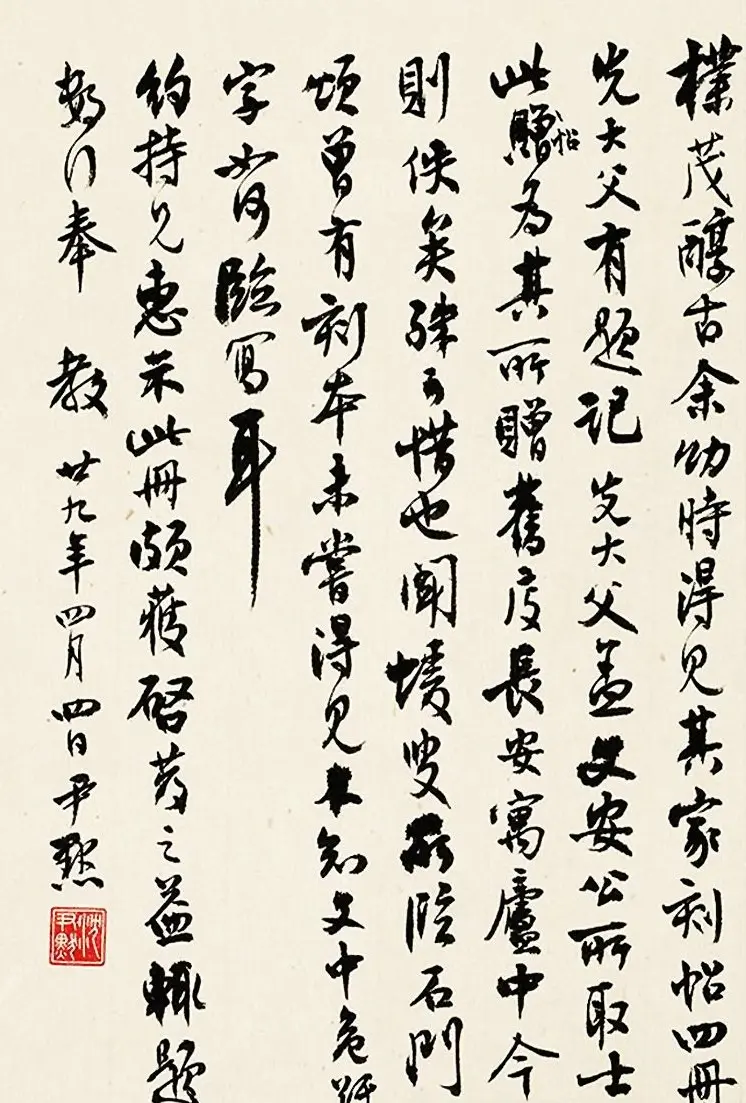 樸茂醇古余幼時得見其家刻帖四冊
先大父有題記 先大父蓋文安公所取士
此贈帖為其所贈舊庋長安寓廬中今
則佚矣殊可惜也聞蝯叟所臨石門
頌曾有刻本未嘗得見不知文中危
字如何臨寫耳
約持兄惠示此冊頗獲啓發之益輒題
數行奉 教 廿九年四月四日尹默
沈尹默